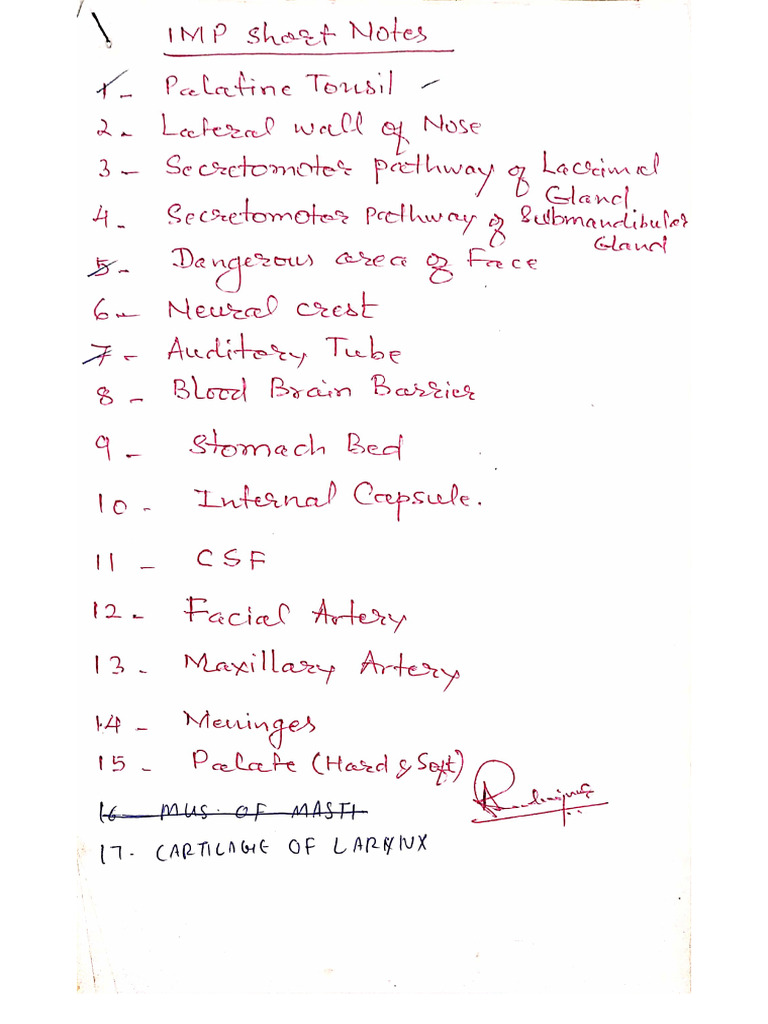 IMP Short Notes
1- Palatine Tonsil -
2- Lateral wall of Nose
3- Secretomotor pathway of Lacrimal
Gland
4- Secretomotor pathway of Submandibular
Gland
5- Dangerous area of Face
6- Neural crest
7- Auditory Tube
8- Blood Brain Barrier
9- Stomach Bed
10- Internal Capsule.
11- CSF
12- Facial Artery
13- Maxillary Artery
14- Meninges
15- Palate (Hard & Soft)
16- MUS. OF MASTI
17. CARTILAGE OF LARYNX